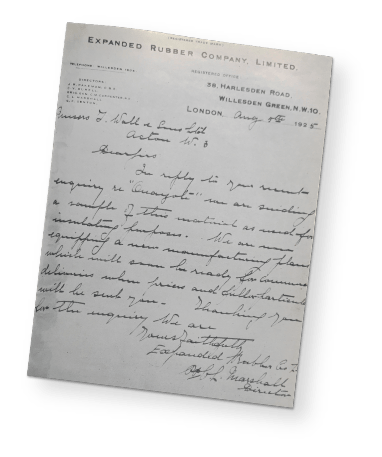 EXPANDED RUBBER COMPANY, LIMITED.
REGISTERED OFFICE
58, HARLESDEN ROAD,
WILLESDEN GREEN, N.W.10.
LONDON, Aug 5th 1925
DIRECTORS
Messrs T. Wall & Sons Ltd
Acton W. 3
Dear Sirs
In reply to your recent
enquiry re "Onazote" we are sending
a sample of this material as used for
insulating purposes. We are now
equipping a new manufacturing plant
which will soon be ready for commercial
deliveries when prices and full particulars
will be sent you. Thanking you
for the enquiry We are
Yours faithfully
Expanded Rubber Co Ld
Marshall
Director